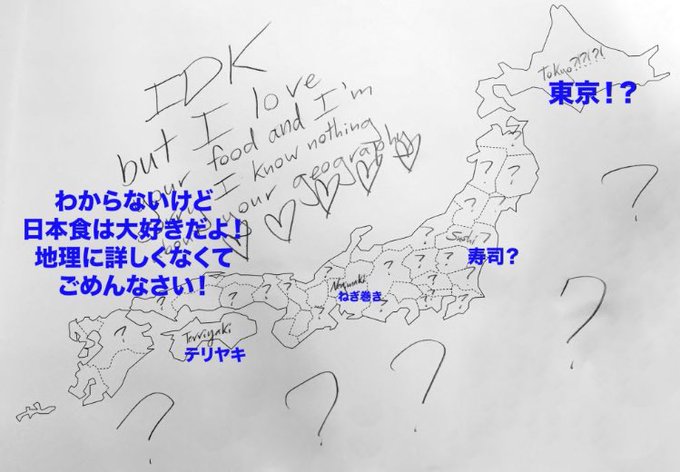 IDK
but I love
your food and I'm
sorry I know nothing
about your geography
Tokyo?!?!?!
東京!?
わからないけど
日本食は大好きだよ!
地理に詳しくなくて
ごめんなさい!
Sushi
寿司?
Negimaki
ねぎ巻き
Terriyaki
テリヤキ
?
?
?
?
?